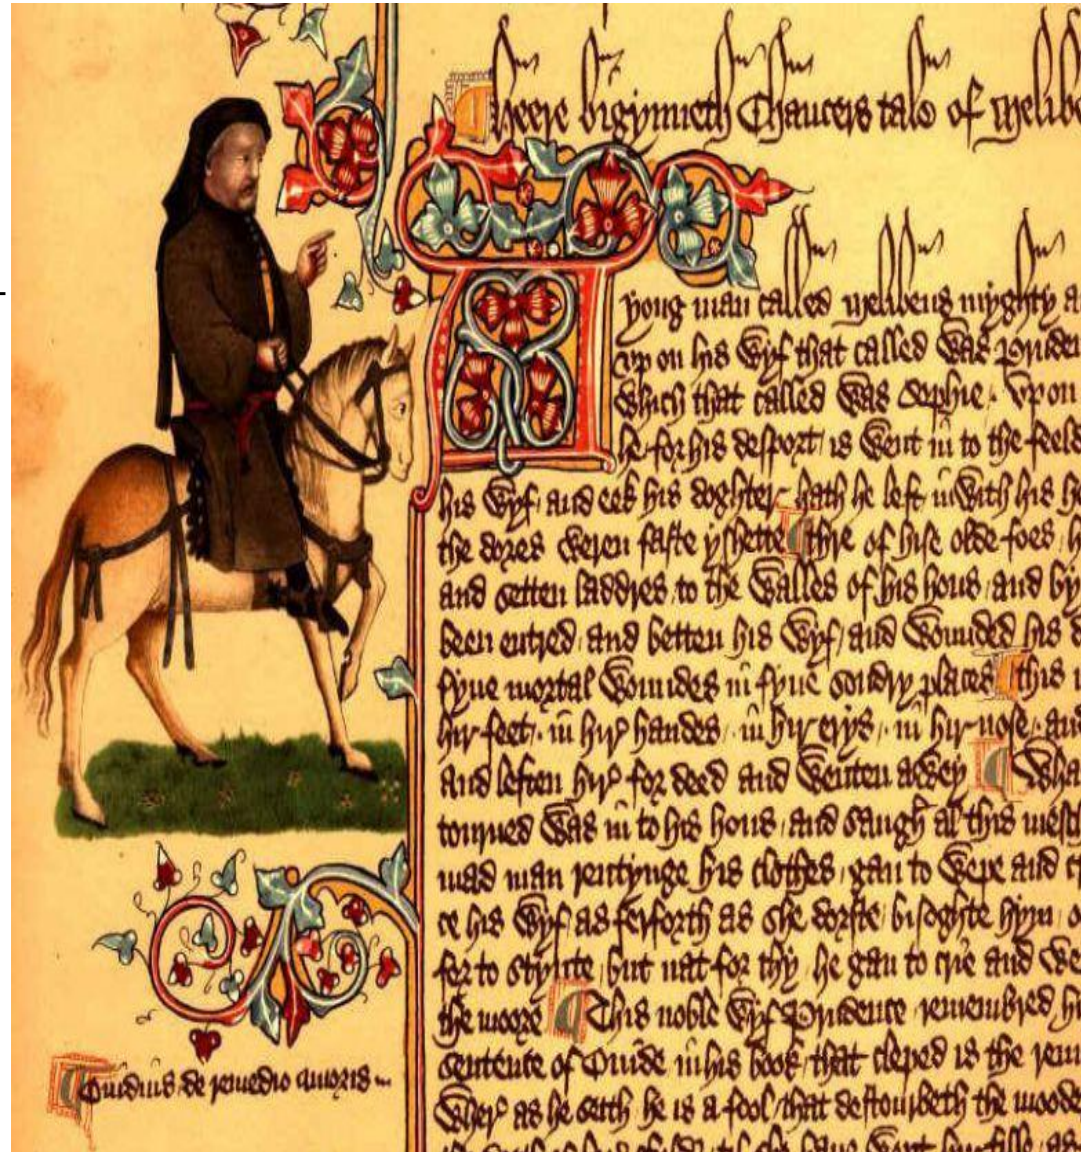 Heere bigynneth Chaucers tale of Melibe
A
yong man called Melibeus myghty a
vp on his wyf that called was Pruden
which that called was Sophie. Vpon
he for his desport is went in to the feeld
his wyf and eek his doghter hath he left inwith his h
the dores weren faste yshette thre of hise olde foes h
and setten laddres to the walles of his hous and by
been entred and betten his wyf and wounded his d
fyue mortal woundes in fyue sondry places this i
hir feet in hir handes in hir erys in hir nose and
and leften hir for deed and wenten awey Wha
tourned was in to his hous and saugh al this mesch
mad man rentynge his clothes gan to wepe and c
ce his wyf as ferforth as she dorste bisoghte hym o
for to stynte but nat for thy he gan to crie and we
the moore This noble wyf Prudence remembred hi
sentence of Ouide in his book that cleped is the rem
wher as he seith he is a fool that destourbeth the mooder
Ouidius de remedio amoris